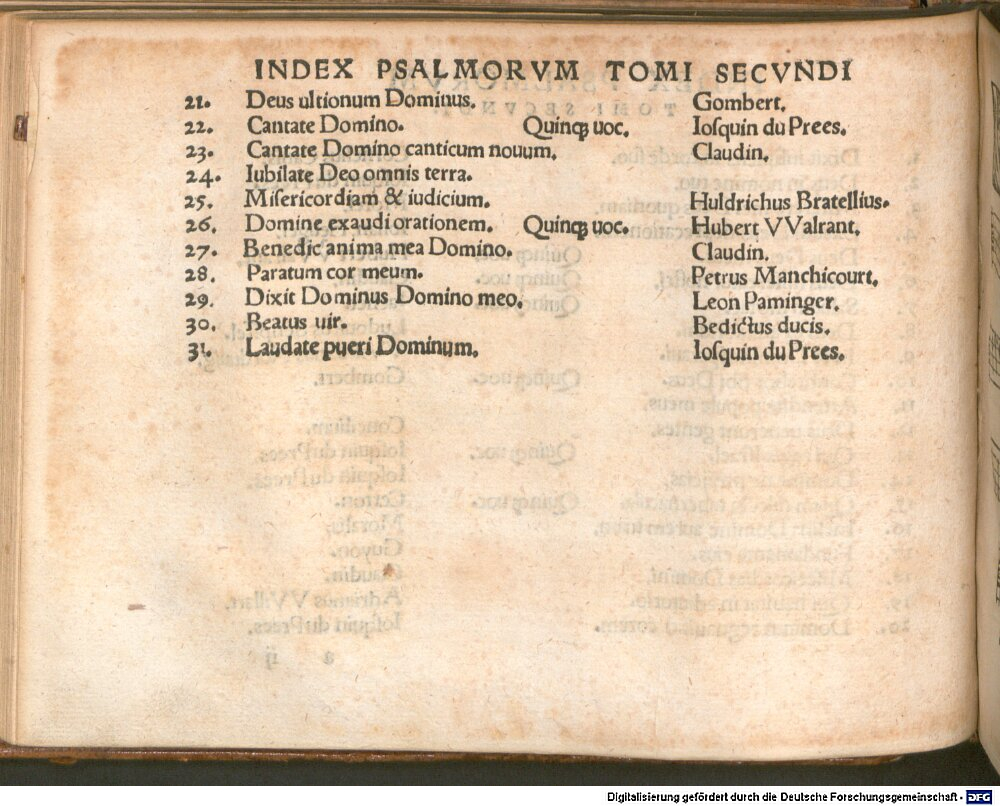 INDEX PSALMORVM TOMI SECVNDI
21. Deus ultionum Dominus. Gombert.
22. Cantate Domino. Quinqꝫ uoc. Ioſquin du Prees.
23. Cantate Domino canticum nouum. Claudin.
24. Iubilate Deo omnis terra.
25. Miſericordiam & iudicium. Huldrichus Bratellius.
26. Domine exaudi orationem. Quinqꝫ uoc. Hubert VValrant.
27. Benedic anima mea Domino. Claudin.
28. Paratum cor meum. Petrus Manchicourt.
29. Dixit Dominus Domino meo. Leon Paminger.
30. Beatus uir. Bedictus ducis.
31. Laudate pueri Dominum. Ioſquin du Prees.
Digitalisierung gefördert durch die Deutsche Forschungsgemeinschaft - DFG